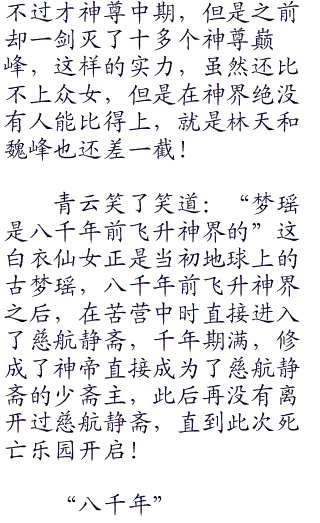 不过才神尊中期，但是之前
却一剑灭了十多个神尊巅
峰，这样的实力，虽然还比
不上众女，但是在神界绝没
有人能比得上，就是林天和
魏峰也还差一截！
青云笑了笑道：“梦瑶
是八千年前飞升神界的”这
白衣仙女正是当初地球上的
古梦瑶，八千年前飞升神界
之后，在苦营中时直接进入
了慈航静斋，千年期满，修
成了神帝直接成为了慈航静
斋的少斋主，此后再没有离
开过慈航静斋，直到此次死
亡乐园开启！
“八千年”